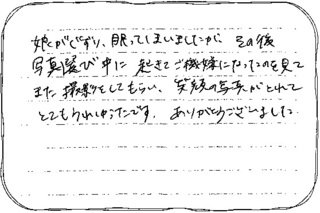 娘がぐずり、眠ってしまいましたが、その後
写真選び中に起きてご機嫌になったのを見て
また撮影をしてもらい、笑顔の写真がとれて
とてもうれしかったです。ありがとうございました